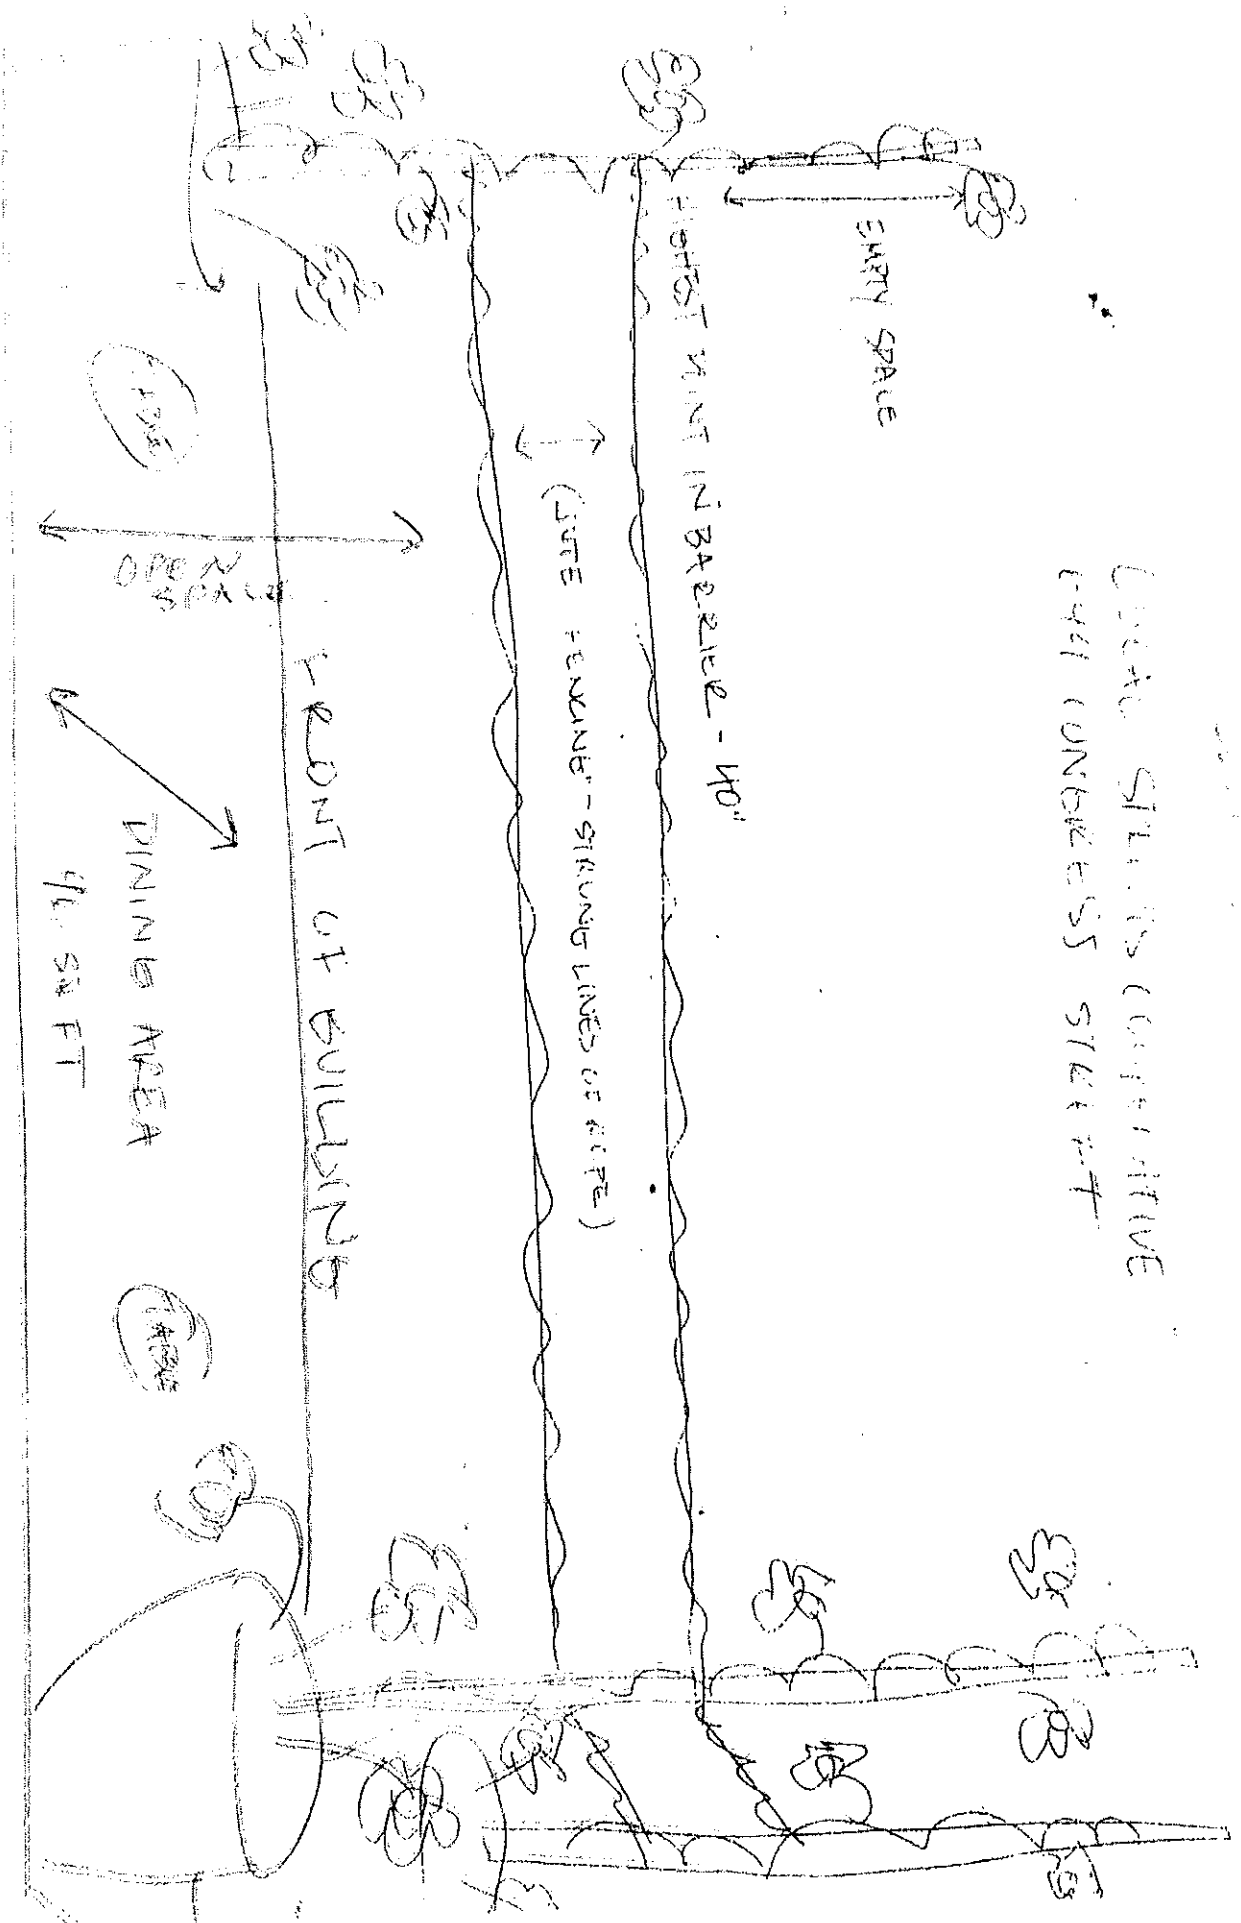 LOCAL SPIRITS COOPERATIVE
CONGRESS STREET
EMPTY SPACE
HIGHEST POINT IN BARRIER - 40"
(JUTE "FENCING" - STRUNG LINES OF ROPE)
FRONT OF BUILDING
OPEN
SPACE
TABLE
TABLE
DINING AREA
SQ FT